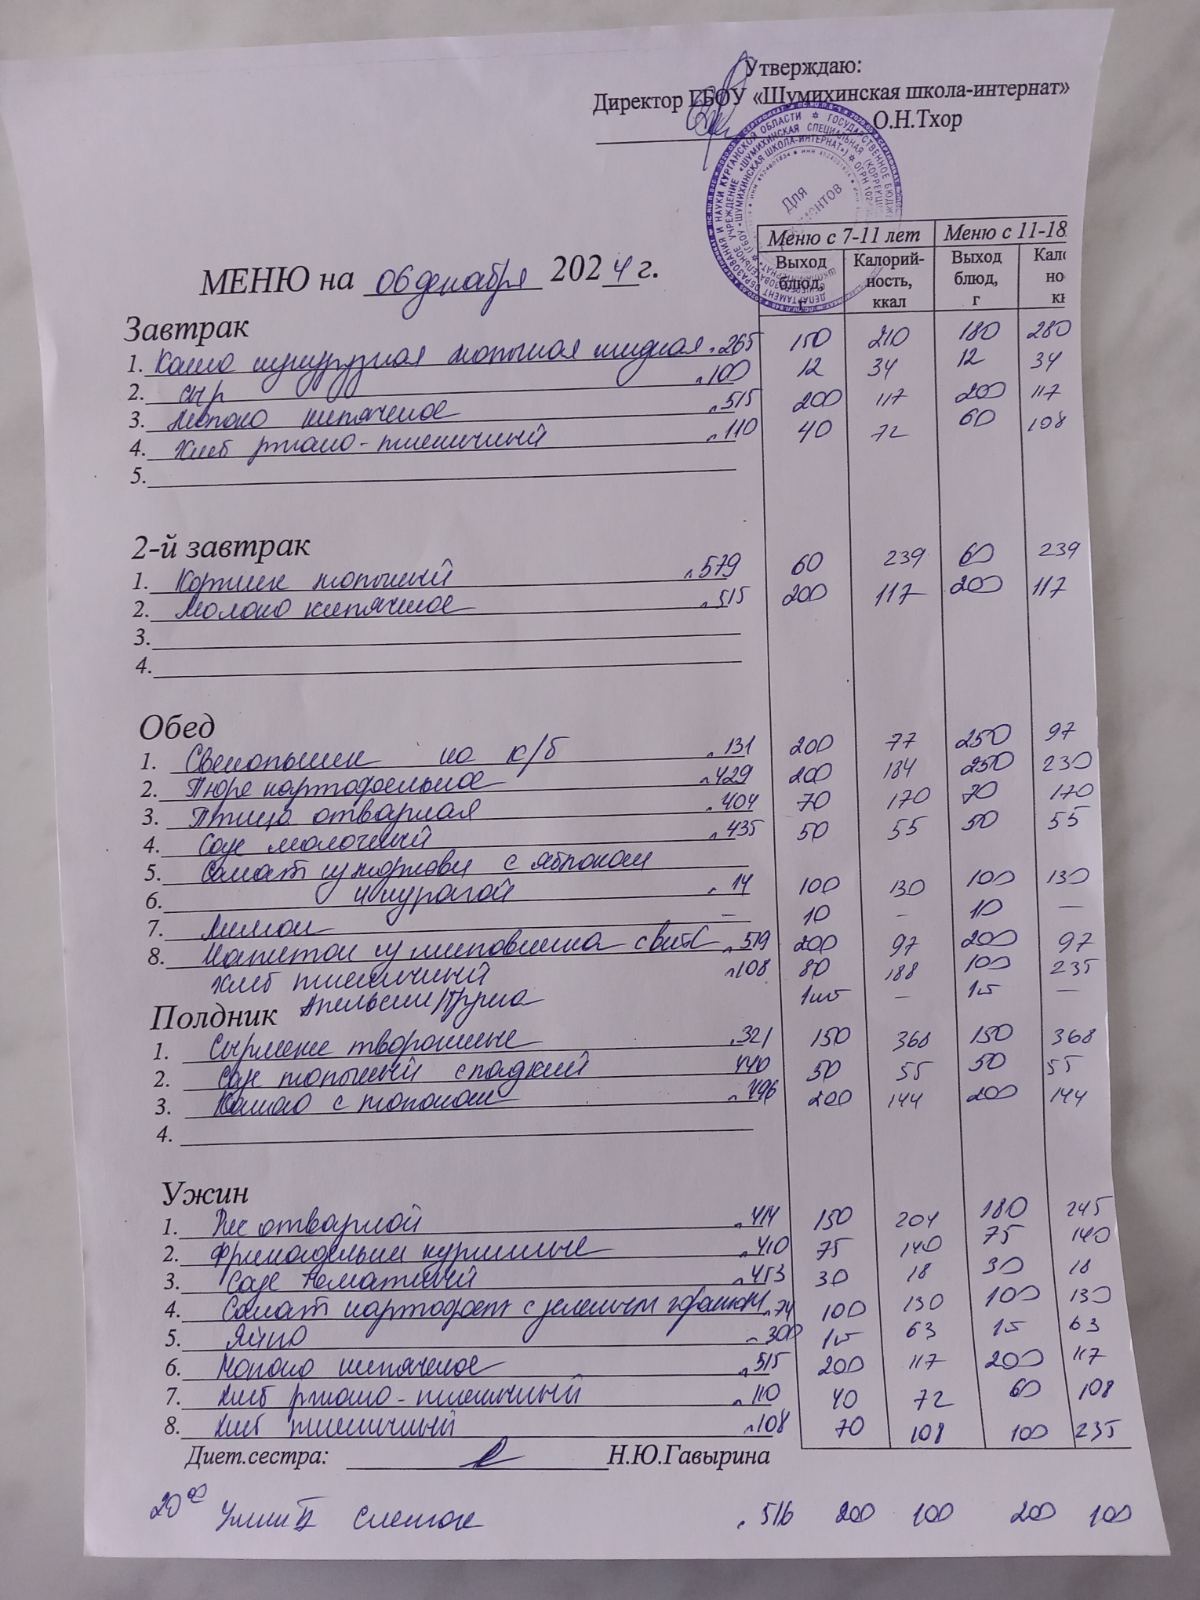 Утверждаю:
Директор ГБОУ «Шумихинская школа-интернат»
О.Н.Тхор
Для документов
Меню с 7-11 лет Меню с 11-18
Выход блюд, г Калорий-ность, ккал Выход блюд, г Кало но кк
МЕНЮ на 06 декабря 2024 г.
Завтрак
1. Каша кукурузная молочная жидкая 265 150 210 180 280
2. сыр 100 12 34 12 34
3. Молоко кипяченое 515 200 117 200 117
4. Хлеб ржано-пшеничный 110 40 72 60 108
5.
2-й завтрак
1. Коржик молочный 579 60 239 60 239
2. Молоко кипяченое 515 200 117 200 117
3.
4.
Обед
1. Свекольник на к/б 131 200 77 250 97
2. Пюре картофельное 429 200 184 250 230
3. Птица отварная 404 70 170 70 170
4. Соус молочный 435 50 55 50 55
5. Салат из моркови с яблоком
6. и курагой 14 100 130 100 130
7. Лимон – 10 – 10 –
8. Напиток из шиповника с вит С 519 200 97 200 97
Хлеб пшеничный 108 80 188 100 235
Апельсин/Груша 1шт – 1шт –
Полдник
1. Сырники творожные 321 150 368 150 368
2. Соус молочный сладкий 440 50 55 50 55
3. Какао с молоком 496 200 144 200 144
4.
Ужин
1. Рис отварной 414 150 204 180 245
2. Фрикадельки куриные 410 75 140 75 140
3. Соус томатный 453 30 18 30 18
4. Салат картофел с зеленым горошком 74 100 130 100 130
5. Яйцо 300 1шт 63 1шт 63
6. Молоко кипяченое 515 200 117 200 117
7. Хлеб ржано-пшеничный 110 40 72 60 108
8. Хлеб пшеничный 108 70 108 100 235
Диет.сестра: Н.Ю.Гавырина
20⁰⁰ Снежок 516 200 100 200 100